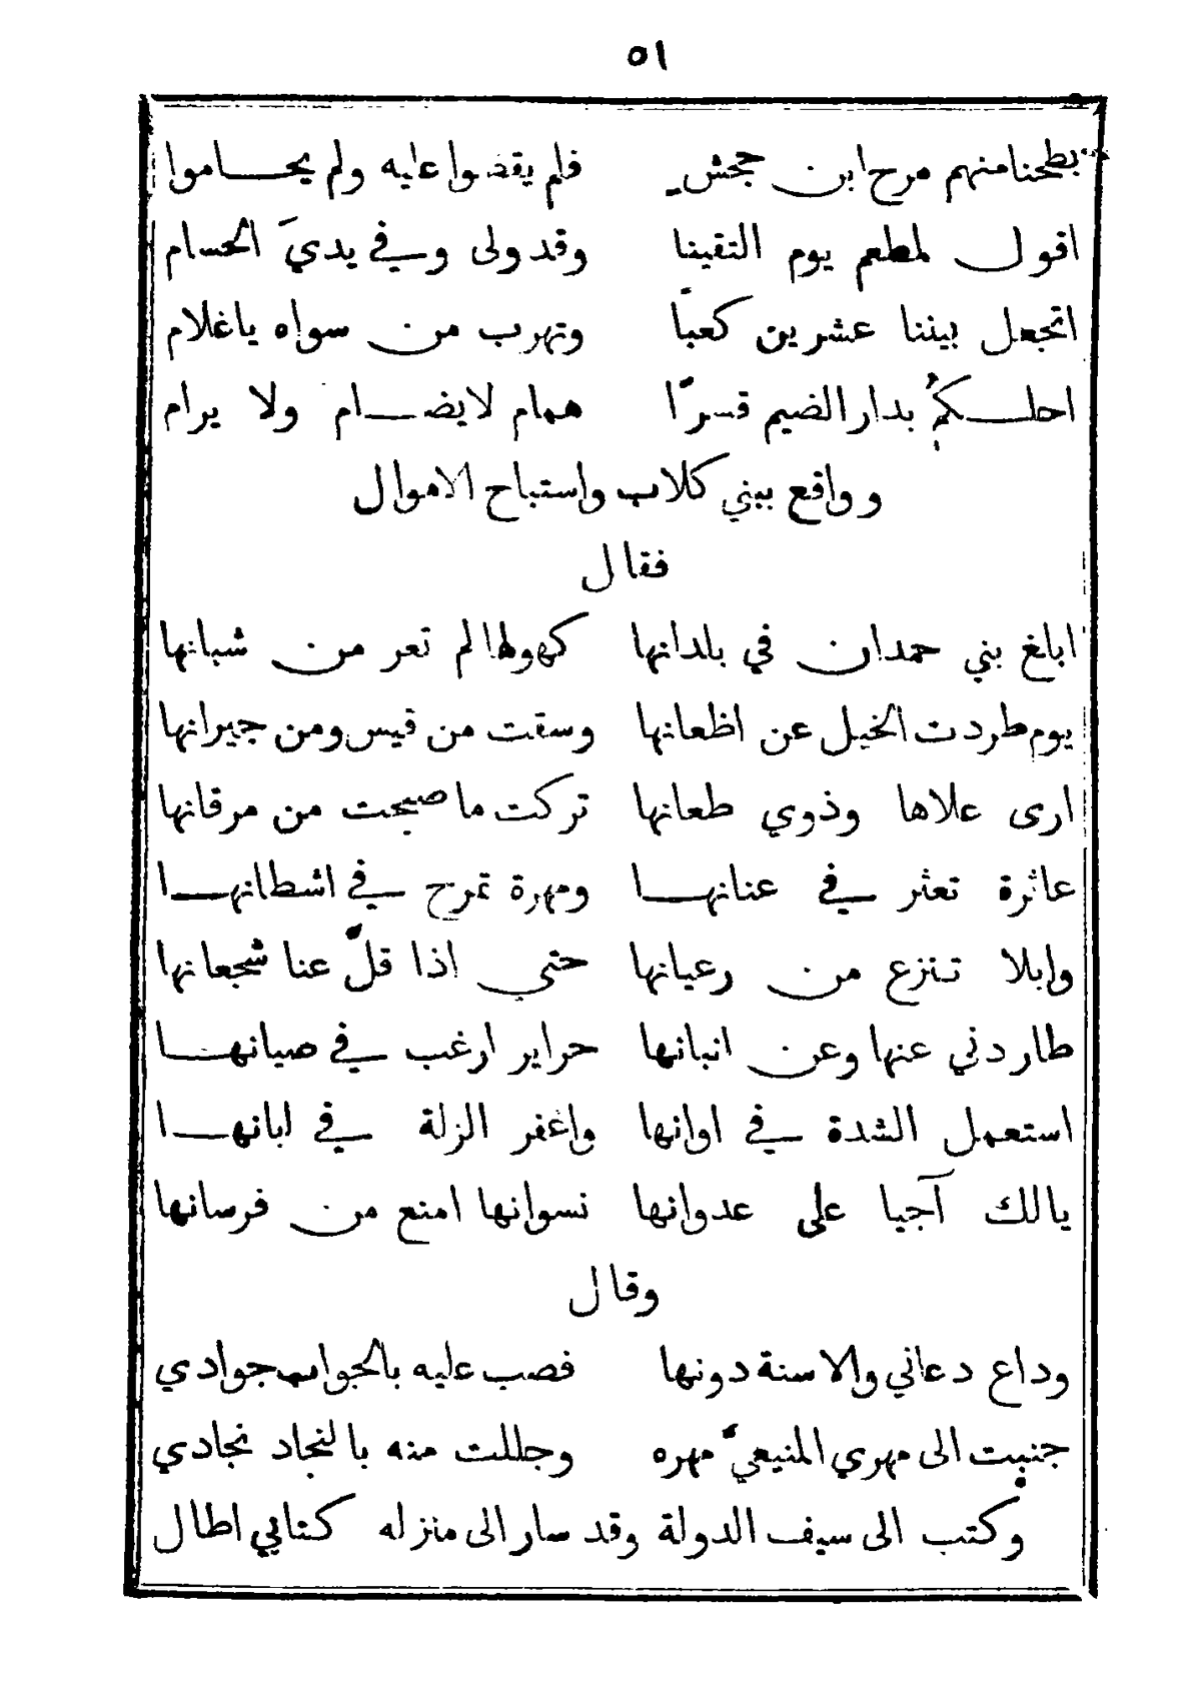 ٥١
بطحنا منهم مرح ابن جحش فلم يقضوا عليه ولم يحـــاموا
اقول لمطعم يوم التقينا وقد ولى وفي يديَ الحسام
اتجعل بيننا عشرين كعبًا وتهرب من سواه ياغلام
احلـــكمُ بدار الضيم قسرًا همام لايضـــام ولا يرام
وواقع ببني كلاب واستباح الاموال
فقال
ابلغ بني حمدان في بلدانها كهولها لم تعر من شبانها
يوم طردت الخيل عن اظعانها وسقت من قيس ومن جيرانها
ارى علاها وذوي طعانها تركت ما صبحت من مرقانها
عاثرة تعثر في عنانهـــا ومهرة تمرح في اشطانهـــا
وابلا تنزع من رعيانها حتى اذا قلّ عنا شجعانها
طاردني عنها وعن انبانها حراير ارغب في صيانهـــا
استعمل الشدة في اوانها واغفر الزلة في ابانهـــا
يالك آجيا على عدوانها نسوانها امنع من فرسانها
وقال
وداع دعاني والاسنة دونها فصب عليه بالجواب جوادي
جنبت الى مهري المنيعيّ مهره وجللت منه بالنجاد نجادي
وكتب الى سيف الدولة وقد سار الى منزله كتابي اطال